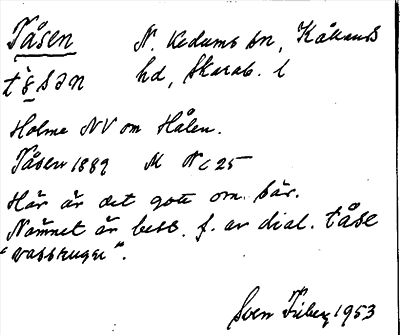 Tåsen N. Kedums sn, Kållands
hd, Skarab. l
Holme NV om Hålen.
Tåsen 1889 M Nc 25
Här är det gott om bär.
Namnet är best. f. av dial. tåse
"vasstruge".
Sven 1953